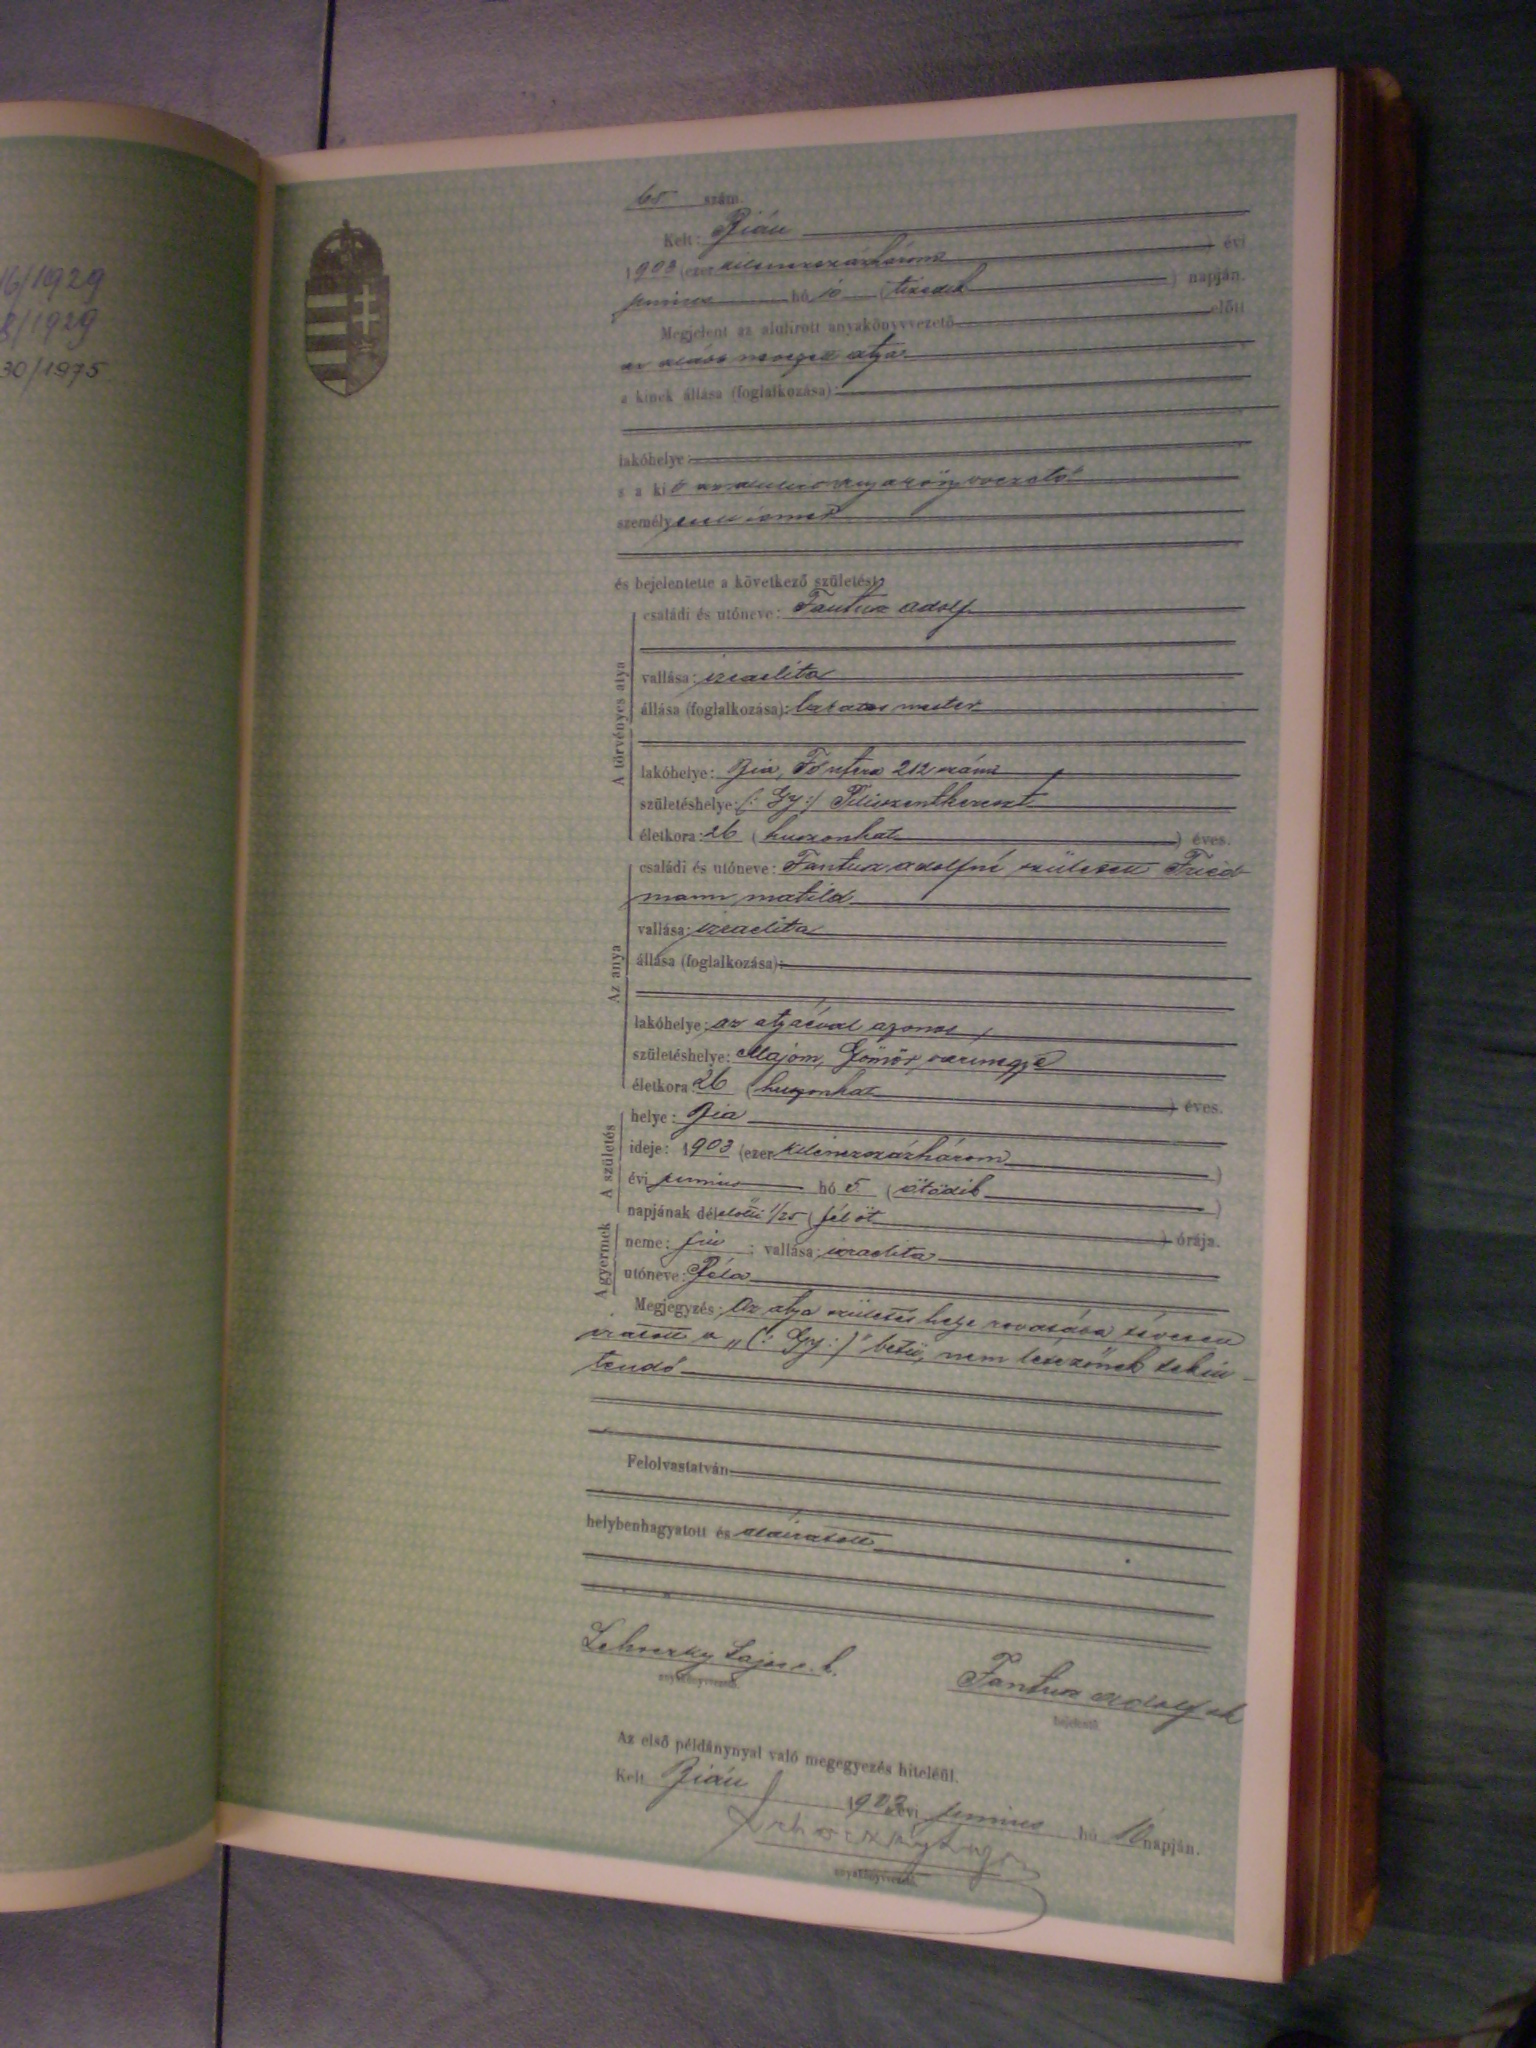 16/1929
8/1929
30/1975.
65 szám.
Kelt: Bián
1903 (ezerkilencszázhárom) évi
junius hó 10 (tizedik) napján.
Megjelent az alulirott anyakönyvvezető előtt
az alább nevezett atya
a kinek állása (foglalkozása):
lakóhelye:
s a ki
személy
és bejelentette a következő születést:
A törvényes atya
családi és utóneve: Fantusz Adolf
vallása: izraelita
állása (foglalkozása): lakatos mester
lakóhelye: Bia, Fő utcza 212 szám
születéshelye: (: Gy :) Pilisszentkereszt
életkora: 26 (huszonhat) éves.
Az anya
családi és utóneve: Fantusz Adolfné született Fried-
mann Matild
vallása: izraelita
állása (foglalkozása):
lakóhelye: az atyáéval azonos
születéshelye: Majom, Gömör vármegye
életkora 26 (huszonhat) éves.
A születés
helye: Bia
ideje: 1903 (ezerkilencszázhárom)
évi junius hó 5 (ötödik)
napjának délelőtti 1/25 (fél öt) órája.
A gyermek
neme: fiu; vallása: izraelita
utóneve: Béla
Megjegyzés: Az atya születés helye rovatába tévesen
iratott a „(: Gy :)" betű, nem létezőnek tekin-
tendő
Felolvastatván
helybenhagyatott és aláíratott
Lehoczky Lajos s. k.
anyakönyvvezető.
Fantusz Adolf sk
bejelentő.
Az első példánynyal való megegyezés hiteléül.
Kelt Bián 1903 évi junius hó 10 napján.
Lehoczky Lajos
anyakönyvvezető.